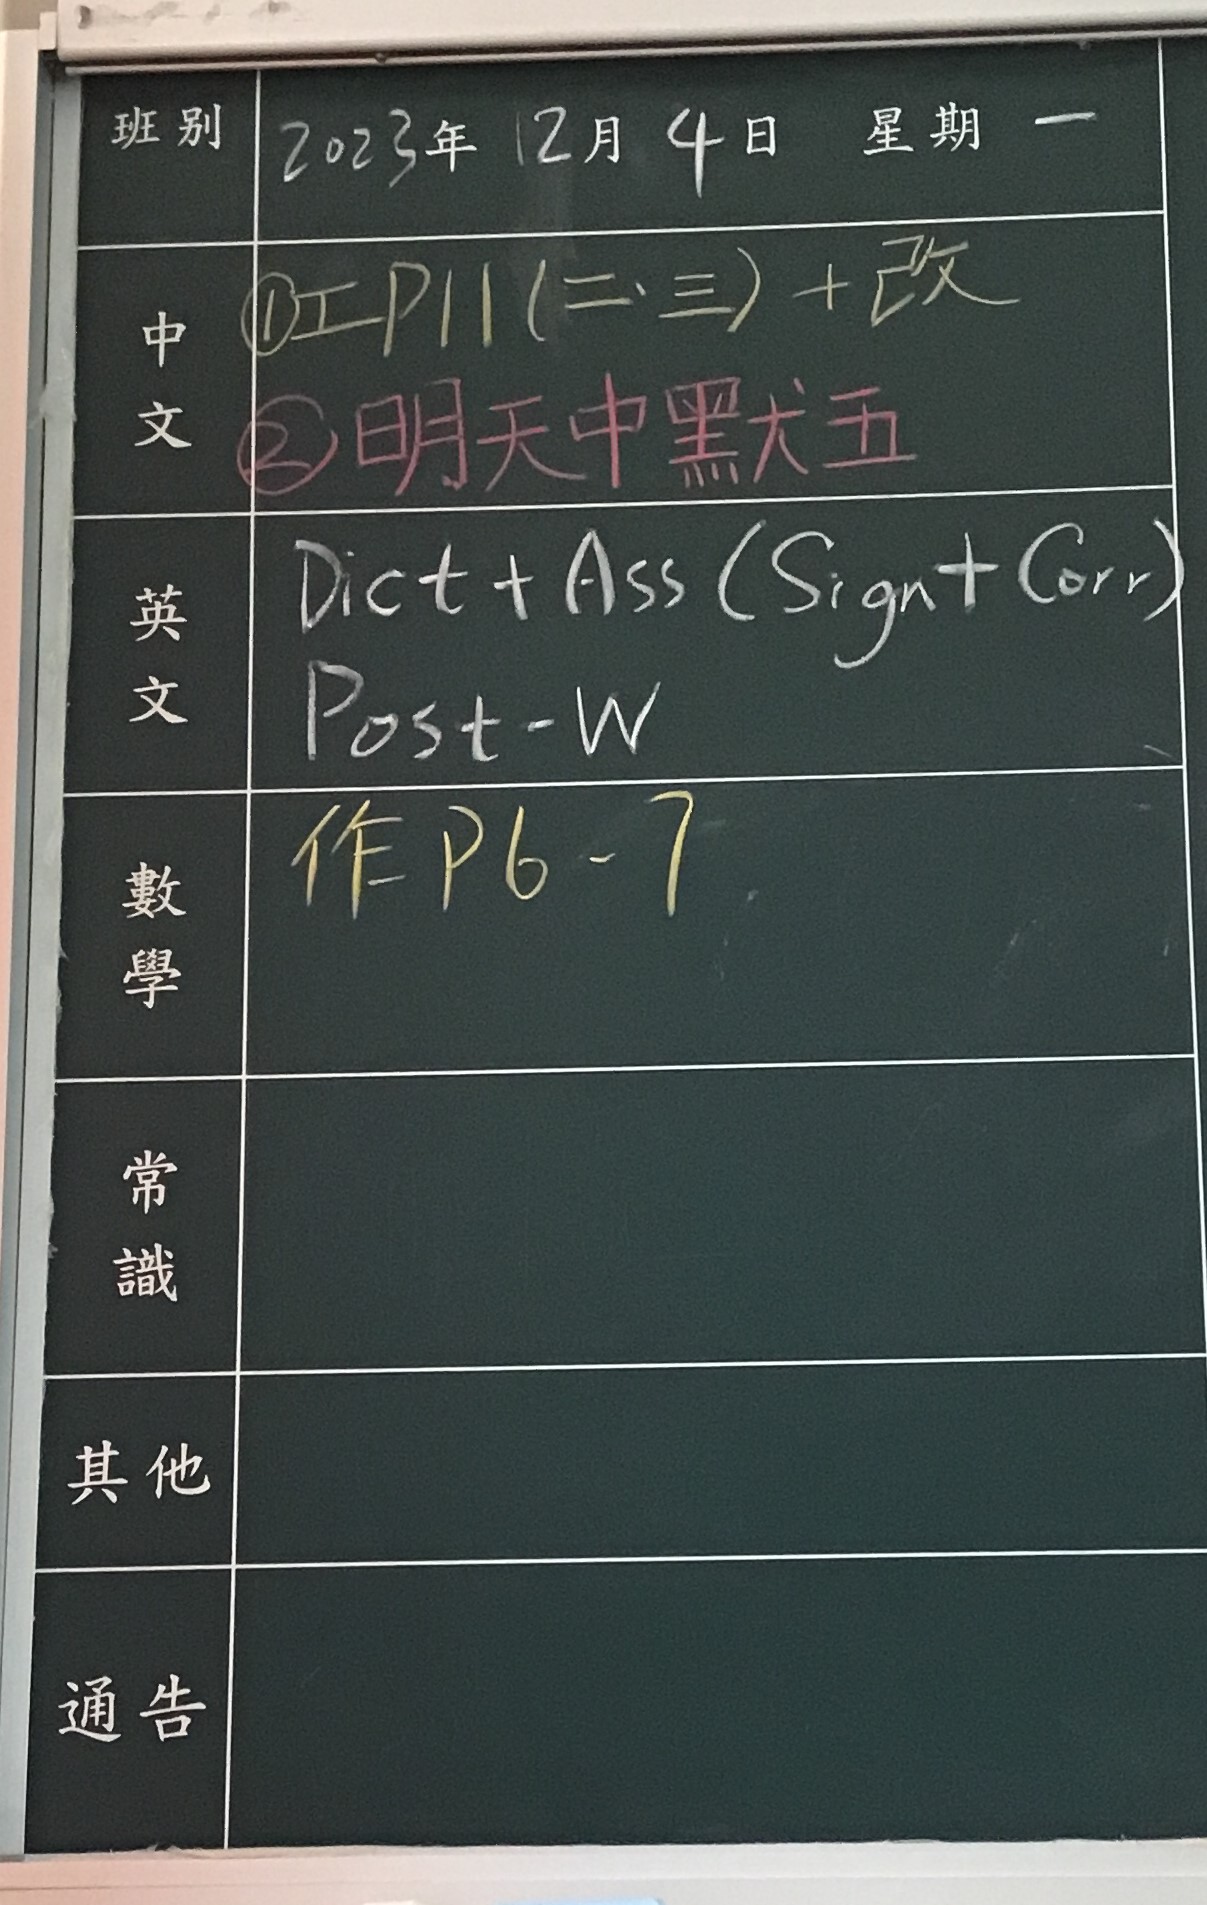 班別 2023年 12月 4日 星期 一
中文
①工P11(二、三)+改
②明天中默五
英文
Dict + Ass (Sign + Corr)
Post-W
數學
作P6-7
常識
其他
通告